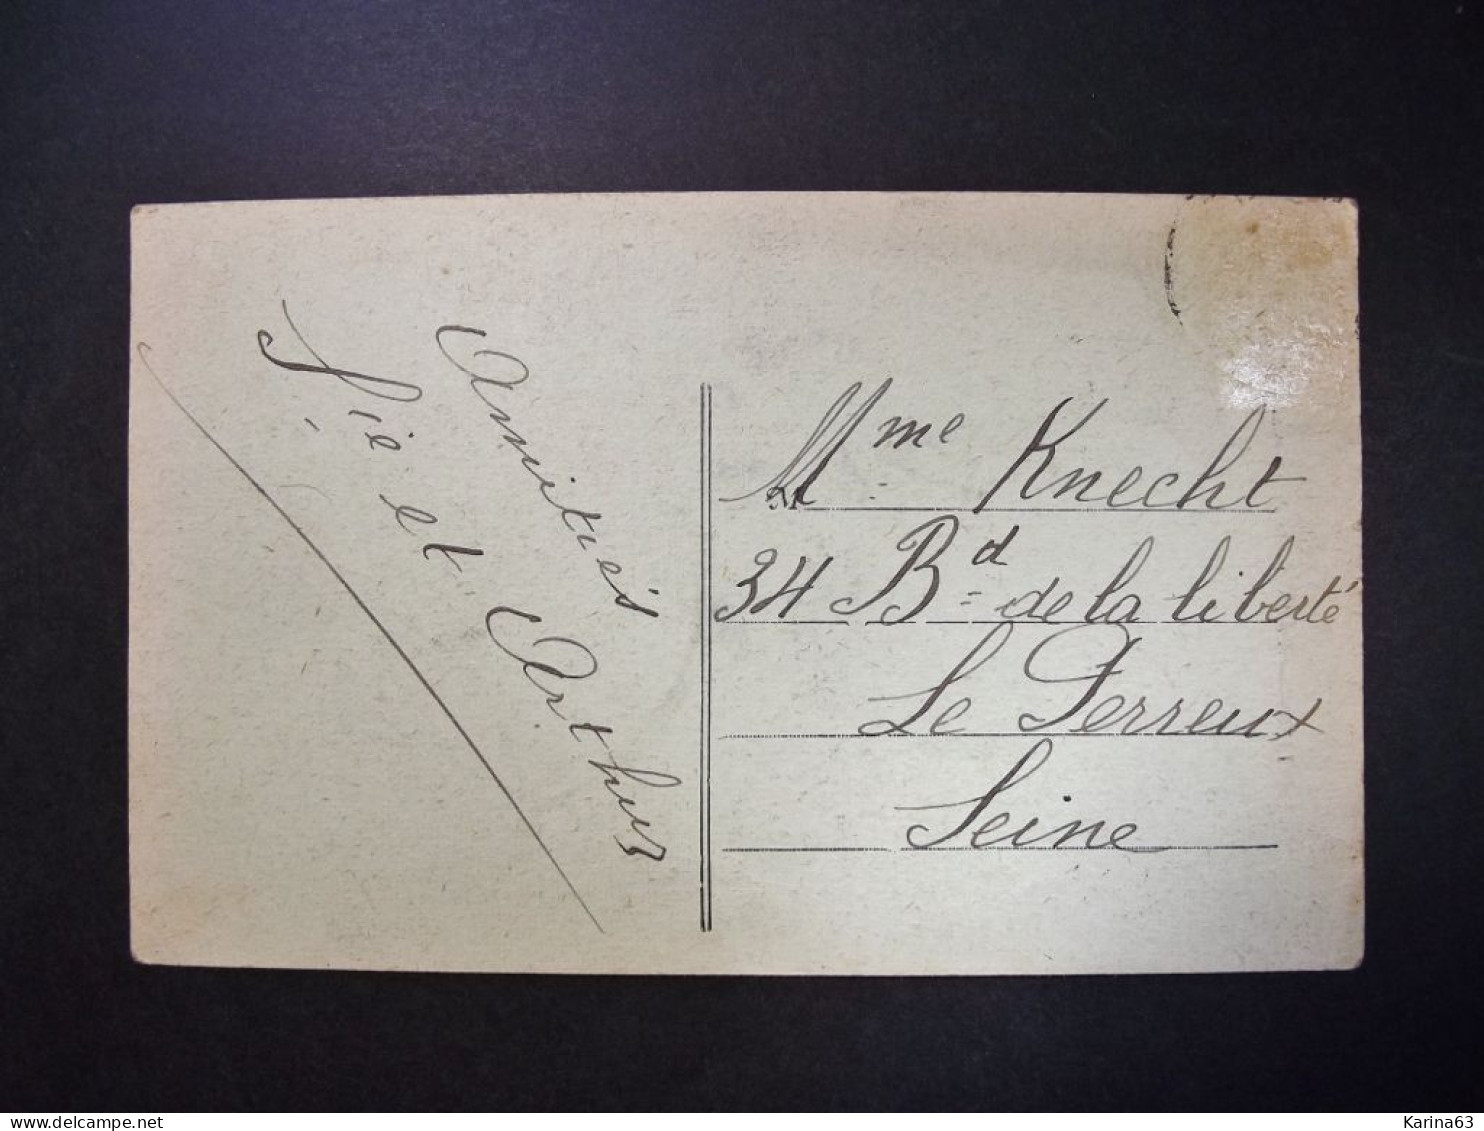 Amitiés
et Arthur
Mme Knecht
34 Bd de la liberté
Le Perreux
Seine
delcampe.net
Karina63